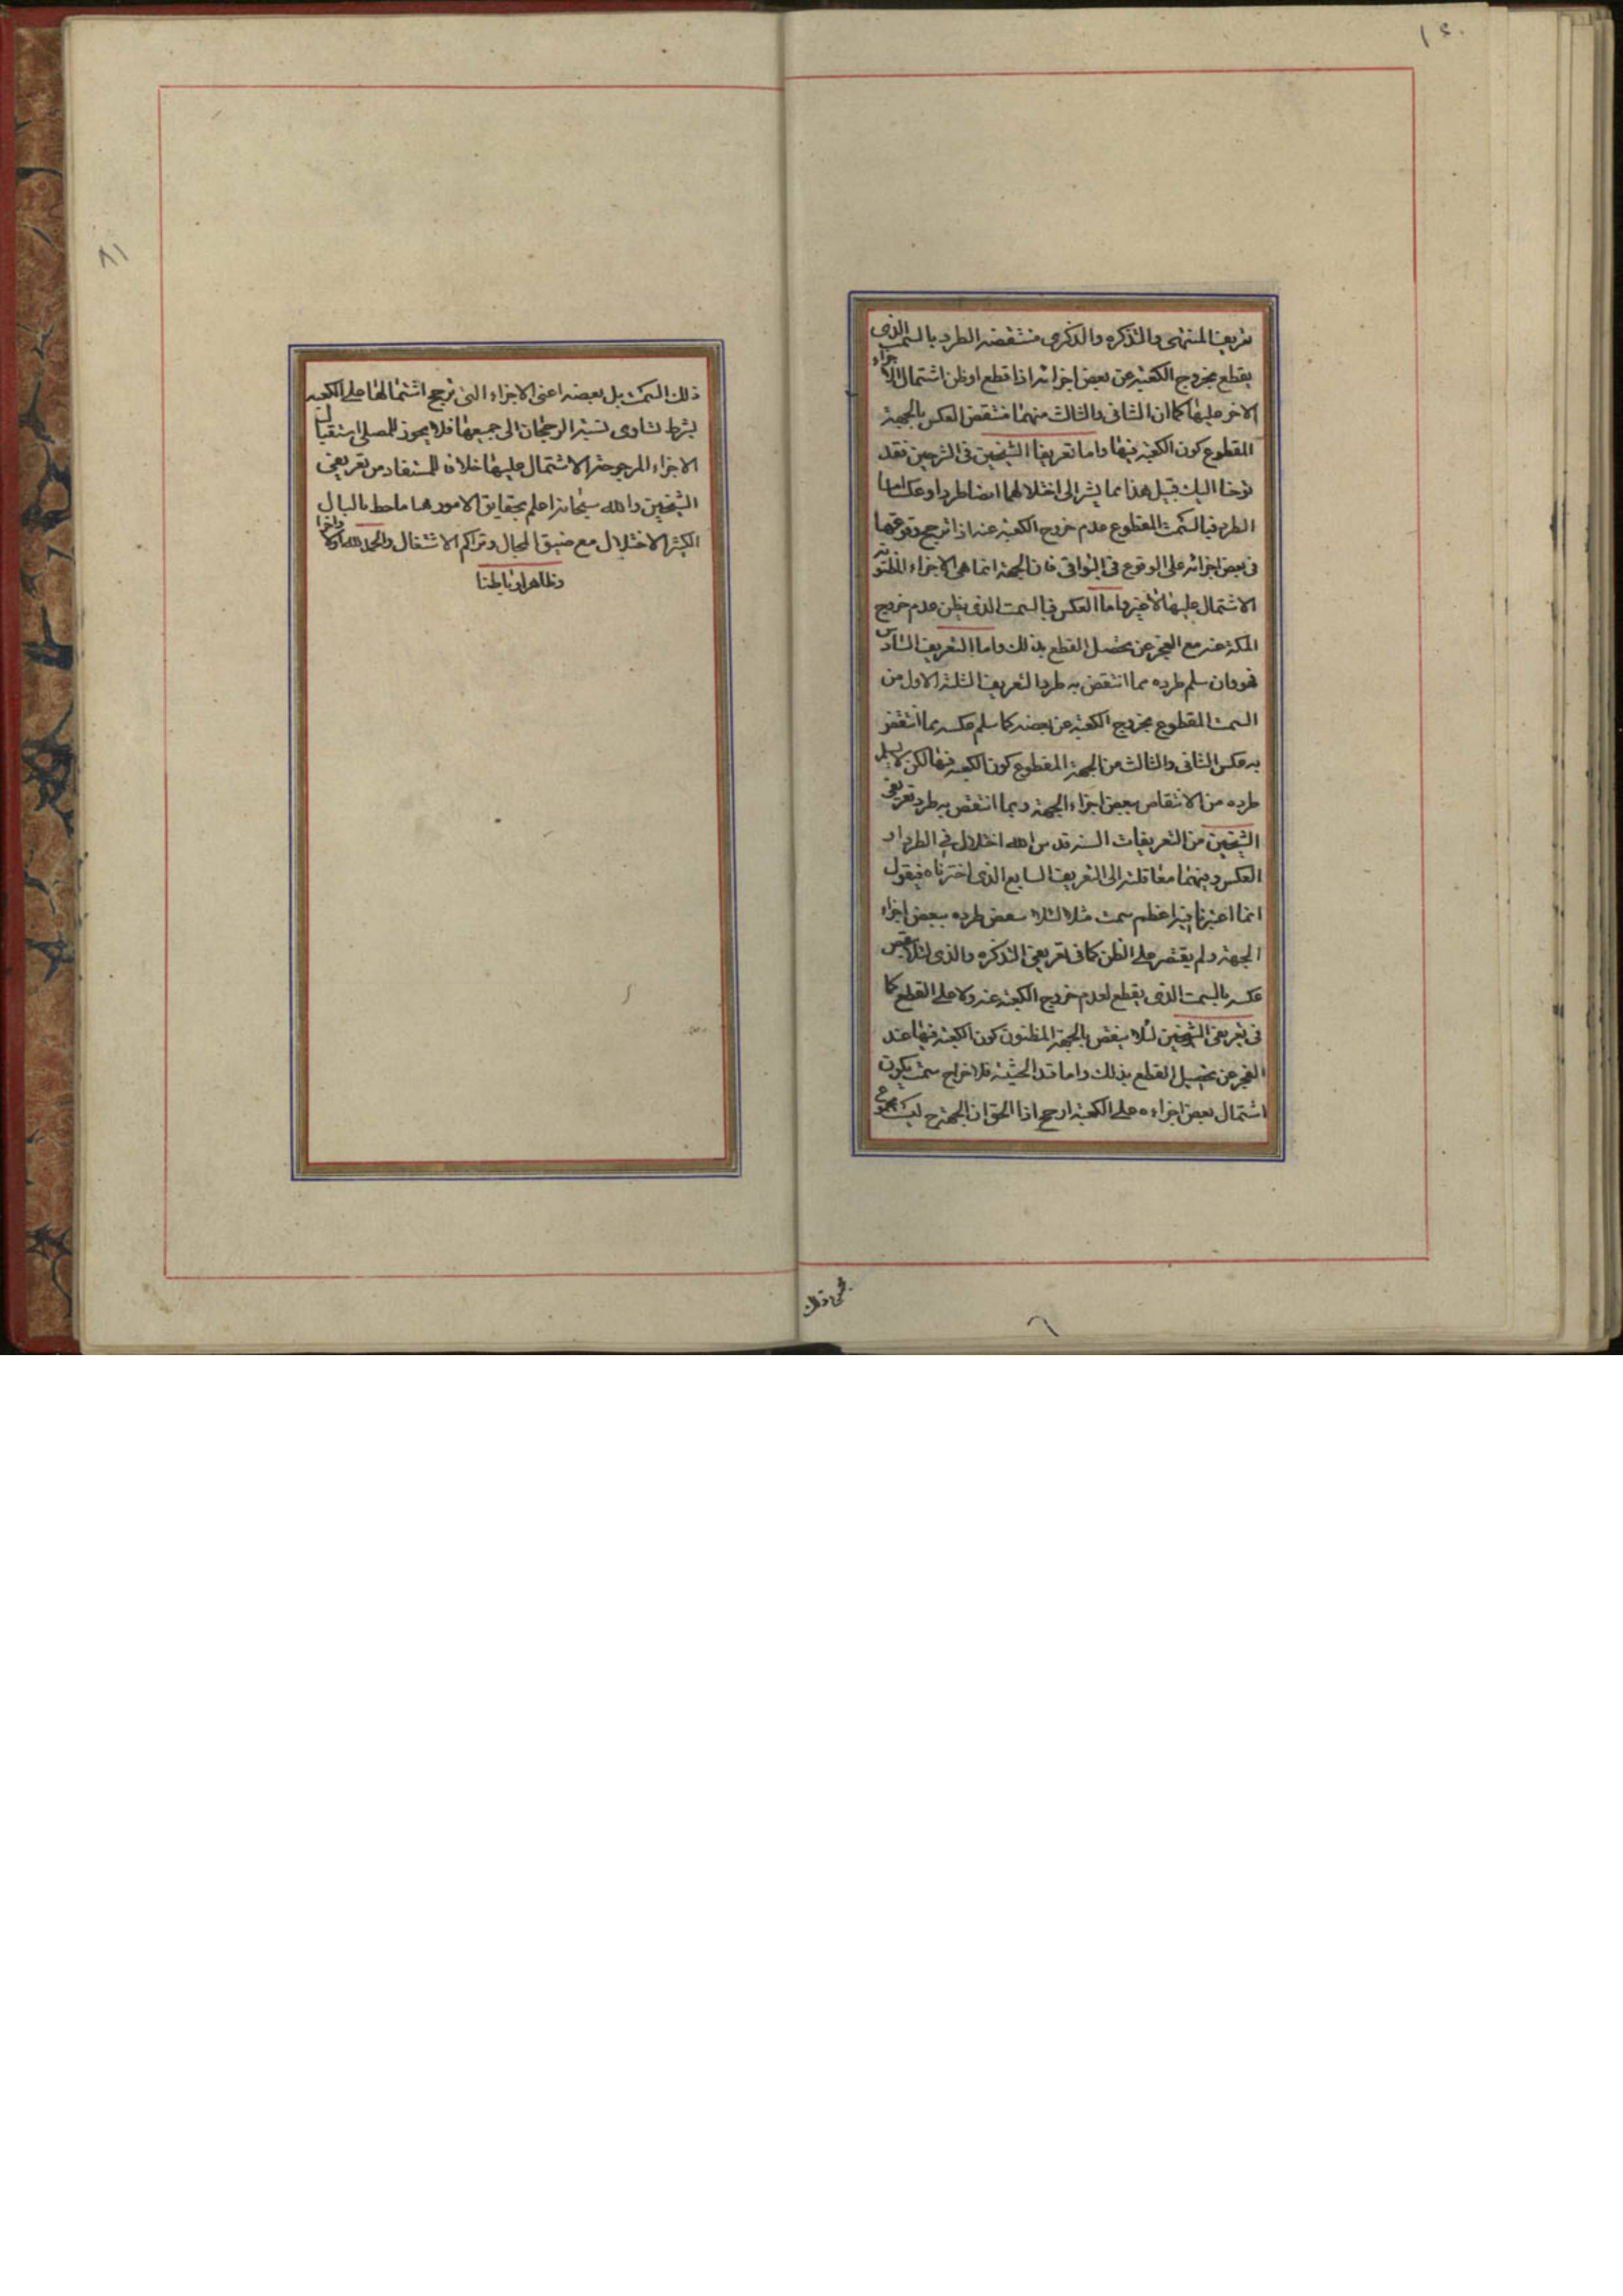 تعريف المنتهى والتذكره والذكرى منتقضة الطرد بالسمت الذى
يقطع بخروج الكعبة عن بعض اجزائه اذا قطع او ظن اشتمال الاجزاء
الاخر عليها كما ان الثانى والثالث منهما منتقض العكس بالجهة
المقطوع كون الكعبة فيها واما تعريفا الشيخين فى الشرحين فقد
اليك قبيل هذا بما يشير الى اختلالهما ايضا طردا وعكسا اما
الطرد فبالسمت المقطوع عدم خروج الكعبة عنه اذا ترجح وقوعها
فى بعض اجزائه على الوقوع فى البواقى فان الجهة انما هى الاجزاء المظنونة
الاشتمال عليها لا غير واما العكس فبالسمت الذى يظن عدم خروج
الكعبة عنه مع العجز عن تحصيل القطع بذلك واما التعريف السادس
فهو وان سلم طرده مما انتقض به طرد التعريف الثلثة الاول من
السمت المقطوع بخروج الكعبة عن بعضه كما سلم عكسه مما انتقض
به عكس الثانى والثالث من الجهة المقطوع كون الكعبة فيها لكن لا يسلم
طرده من الانتقاض ببعض اجزاء الجهة وبما انتقض به طرد تعريفى
الشيخين من التعريفات الستة اختلال فى الطرد او
العكس وفيهما معا الى التعريف السابع الذى اخترناه فيقول
انما اعتبرنا فيه اعظم سمت مثلا لئلا ينتقض طرده ببعض اجزاء
الجهة ولم يقتصر على الظن كما فى تعريفى التذكره والذكرى لئلا ينتقض
عكسه بالسمت الذى يقطع لعدم خروج الكعبة عنه ولا على القطع كما
فى تعريفى الشيخين لئلا ينتقض بالجهة المظنون كون الكعبة فيها عند
العجز عن تحصيل القطع بذلك واما قيد الحيثية فلاخراج سمت يكون
اشتمال بعض اجزاءه على الكعبة ارجح اذا الحق ان الجهة ح ليست مجموع
ذلك السمت بل بعضه اعنى الاجزاء التى ترجح اشتمالها على الكعبة
بشرط تساوى نسبة الرجحان الى جميعها فلا يجوز للمصلى استقبال
الاجزاء المرجوحة الاشتمال عليها خلاف المستفاد من تعريفى
الشيخين والله سبحانه اعلم بحقايق الامور هذا ما خط بالبال
الكثير الاختلال مع ضيق المجال وتراكم الاشتغال والحمد لله اولا واخرا
وظاهرا وباطنا